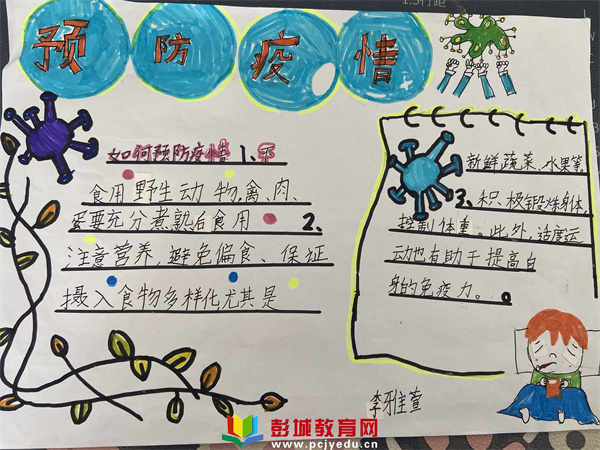 预防疫情
如何预防疫情 1、不
食用野生动物,禽、肉、
蛋要充分煮熟后食用 2、
注意营养,避免偏食、保证
摄入食物多样化尤其是
新鲜蔬菜、水果等,
3、积极锻炼身体,
控制体重、此外,适度运
动也有助于提高自
身的免疫力。
李雅萱
彭城教育网
www.pcjyedu.cn